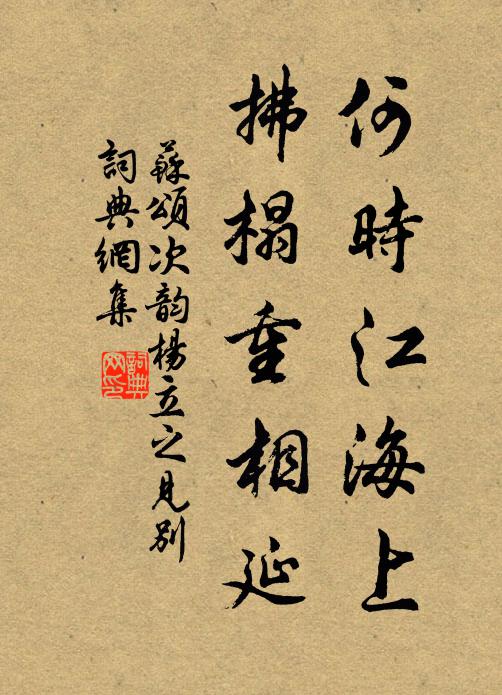 何時江海上
拂榻重相延
蘇頌次韵楊立之見別
詞典網集
詞典
网印